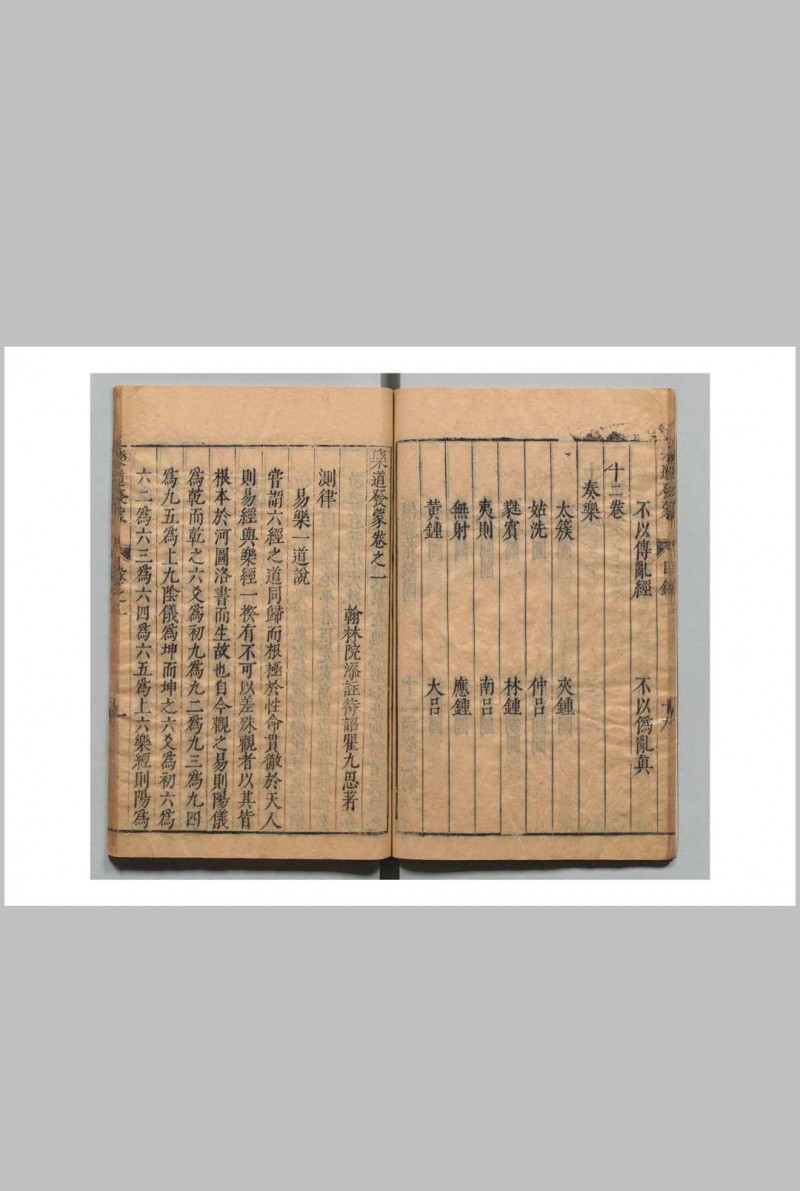 不以傳亂經 不以僞亂眞
十二卷
奏樂
太簇 夾鍾
姑洗 仲呂
蕤賓 林鍾
夷則 南呂
無射 應鍾
黃鍾 大呂
樂道發蒙卷之一
翰林院添註待詔瞿九思著
測律
易樂一道說
嘗謂六經之道同歸而根極於性命貫徹於天人
則易經與樂經一揆有不可以差殊觀者以其皆
根本於河圖洛書而生故也自今觀之易則陽儀
爲乾而乾之六爻爲初九爲九二爲九三爲九四
爲九五爲上九陰儀爲坤而坤之六爻爲初六爲
六二爲六三爲六四爲六五爲上六樂經則陽爲
樂道發蒙 卷之一 一